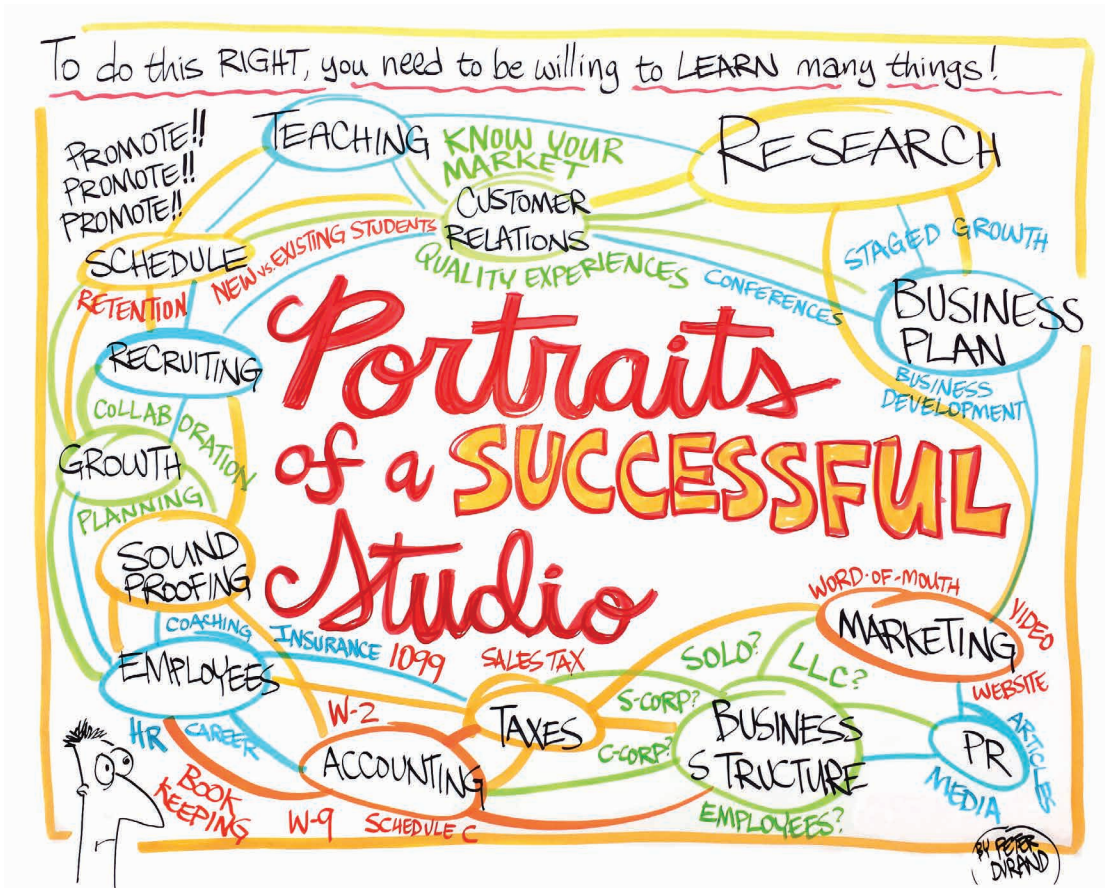 To do this RIGHT, you need to be willing to LEARN many things!
PROMOTE!!
PROMOTE!!
PROMOTE!!
TEACHING
KNOW YOUR
MARKET
RESEARCH
CUSTOMER
RELATIONS
QUALITY EXPERIENCES
SCHEDULE
NEW vs. EXISTING STUDENTS
RETENTION
CONFERENCES
STAGED GROWTH
BUSINESS
PLAN
BUSINESS
DEVELOPMENT
RECRUITING
COLLABORATION
GROWTH
PLANNING
Portraits
of a SUCCESSFUL
Studio
SOUND
PROOFING
COACHING
INSURANCE
1099
SALES TAX
EMPLOYEES
HR
CAREER
W-2
TAXES
ACCOUNTING
BOOK
KEEPING
W-9
SCHEDULE C
SOLO?
LLC?
S-CORP?
C-CORP?
BUSINESS
STRUCTURE
EMPLOYEES?
WORD-OF-MOUTH
MARKETING
VIDEO
WEBSITE
PR
ARTICLES
MEDIA
BY PETER
DURAND